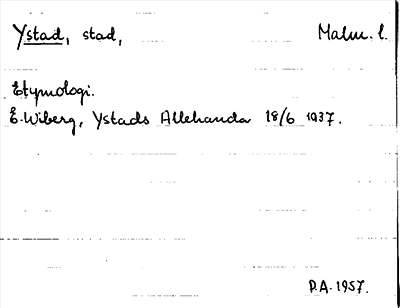 Ystad, stad, Malm. l.
Etymologi.
E. Wiberg, Ystads Allehanda 18/6 1937.
D.A. 1957.